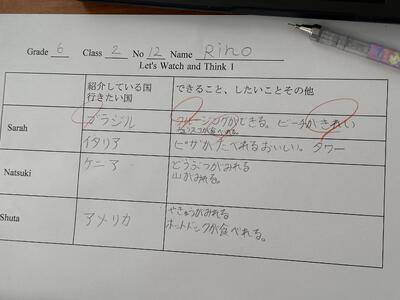 Grade 6 Class 2 No 12 Name Riho
Let's Watch and Think 1
紹介している国
行きたい国
できること、したいことその他
Sarah
ブラジル
ができる。ビーチがきれい
が食べれる。
イタリア
ピザがたべれるおいしい。タワー
Natsuki
ケニア
どうぶつがみれる
山がみれる。
Shuta
アメリカ
やきゅうがみれる
ホットドックが食べれる。